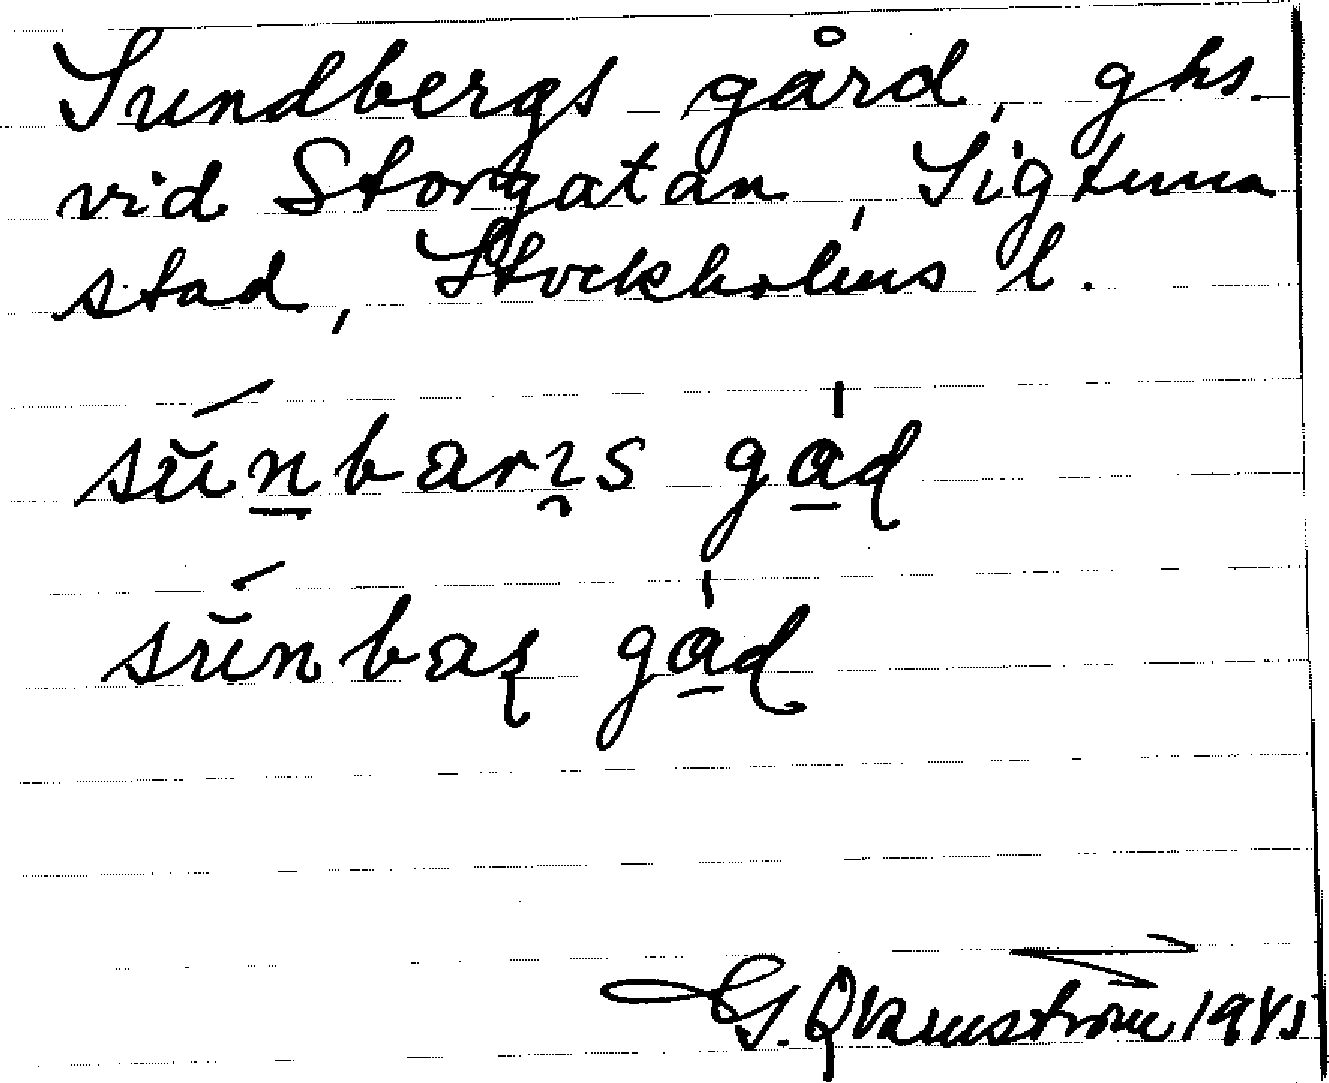 Sundbergs gård, ghs.
vid Storgatan, Sigtuna
stad, Stockholms l.
sŭ́n̲barı̯s ga̲̍d
sŭ́nbaʂ ga̲̍d
G. Qvarnström 1945